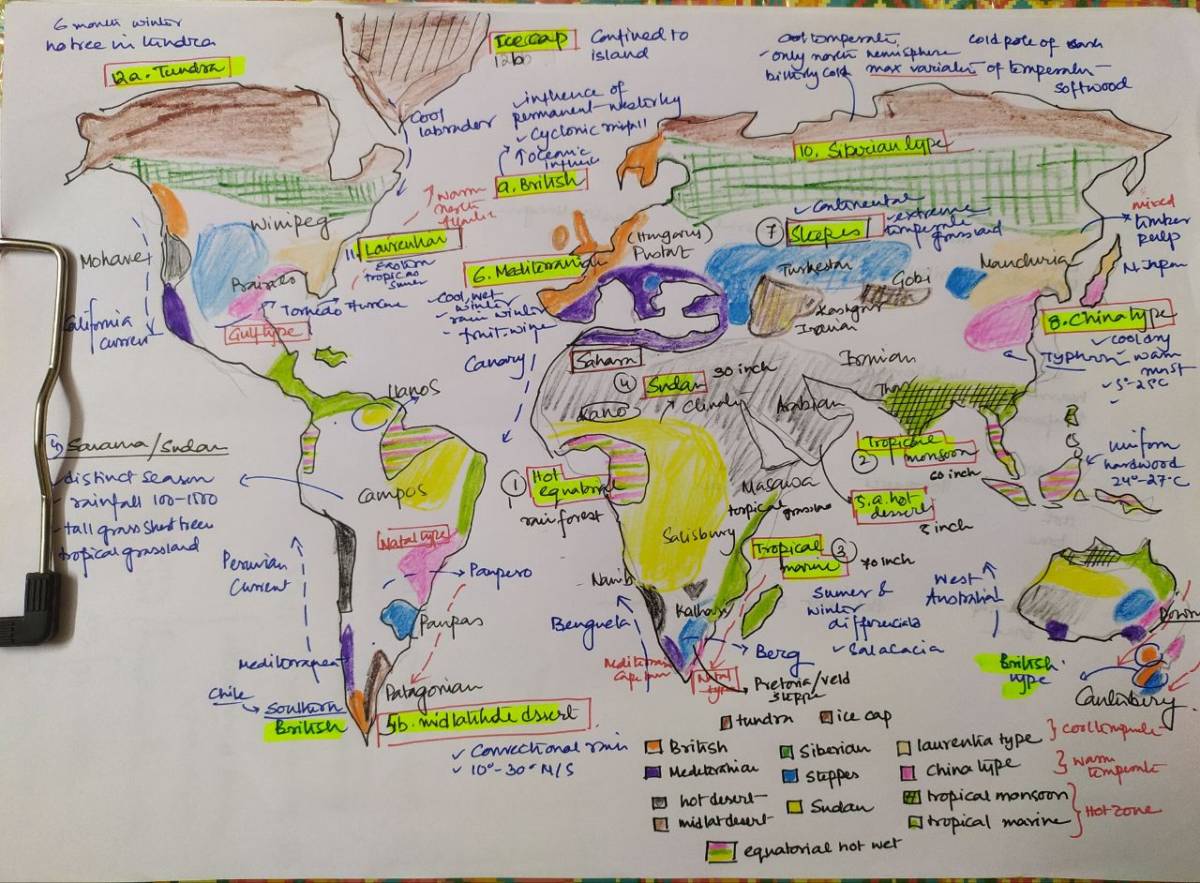 6 month winter
no tree in tundra
12a. Tundra
Ice cap
12b
Confined to
island
cool temperate
only north hemisphere
bitterly cold
max variation of temperature
cold pole of
softwood
Cool
labrador
influence of
permanent westerly
cyclonic rainfall
oceanic
9. British
10. Siberian type
warm
north
11. Laurentian
Eastern
Winipeg
Mohave
Prairies
California
current
Tornado
Gulf type
6. Mediterranian
cool, wet
winter
rain winter
fruit. wine
(Hungary)
Pustat
continental
7
Steepes
extreme
temperate
grassland
Turkestan
Gobi
Kashgar
Iranian
Manchuria
mixed
timber
pulp
N. Japan
8. China type
cool dry
Typhoon
warm
moist
5°-25°C
Canary
Sahara
4
Sudan
30 inch
Kano
Iranian
Thar
Arabian
llanos
4) Savanna/Sudan
distinct season
rainfall
tall grass short trees
tropical grassland
Campos
1
Hot
equatorial
rainforest
Tropical
monsoon
2
60 inch
5.a. hot
desert
5 inch
Massawa
tropical
uniform
hardwood
24°-27°C
Salisbury
Tropical
marine
3
70 inch
Natal type
Peruvian
Current
Pampero
Pampas
Namib
Kalhari
Benguela
Berg
summer &
winter
differ
West
Australia
Down
British
type
Canterbury
Mediterranean
Chile
Southern
British
Patagonian
5b. midlatitude desert
Convectional rain
10°-30° N/S
Natal
type
Pretoria/veld
steppe
tundra
ice cap
British
Siberian
laurentia type
cool temperate
Mediteranian
Steppes
China type
warm
temperate
hot desert
Sudan
tropical monsoon
midlat desert
tropical marine
Hot zone
equatorial hot wet